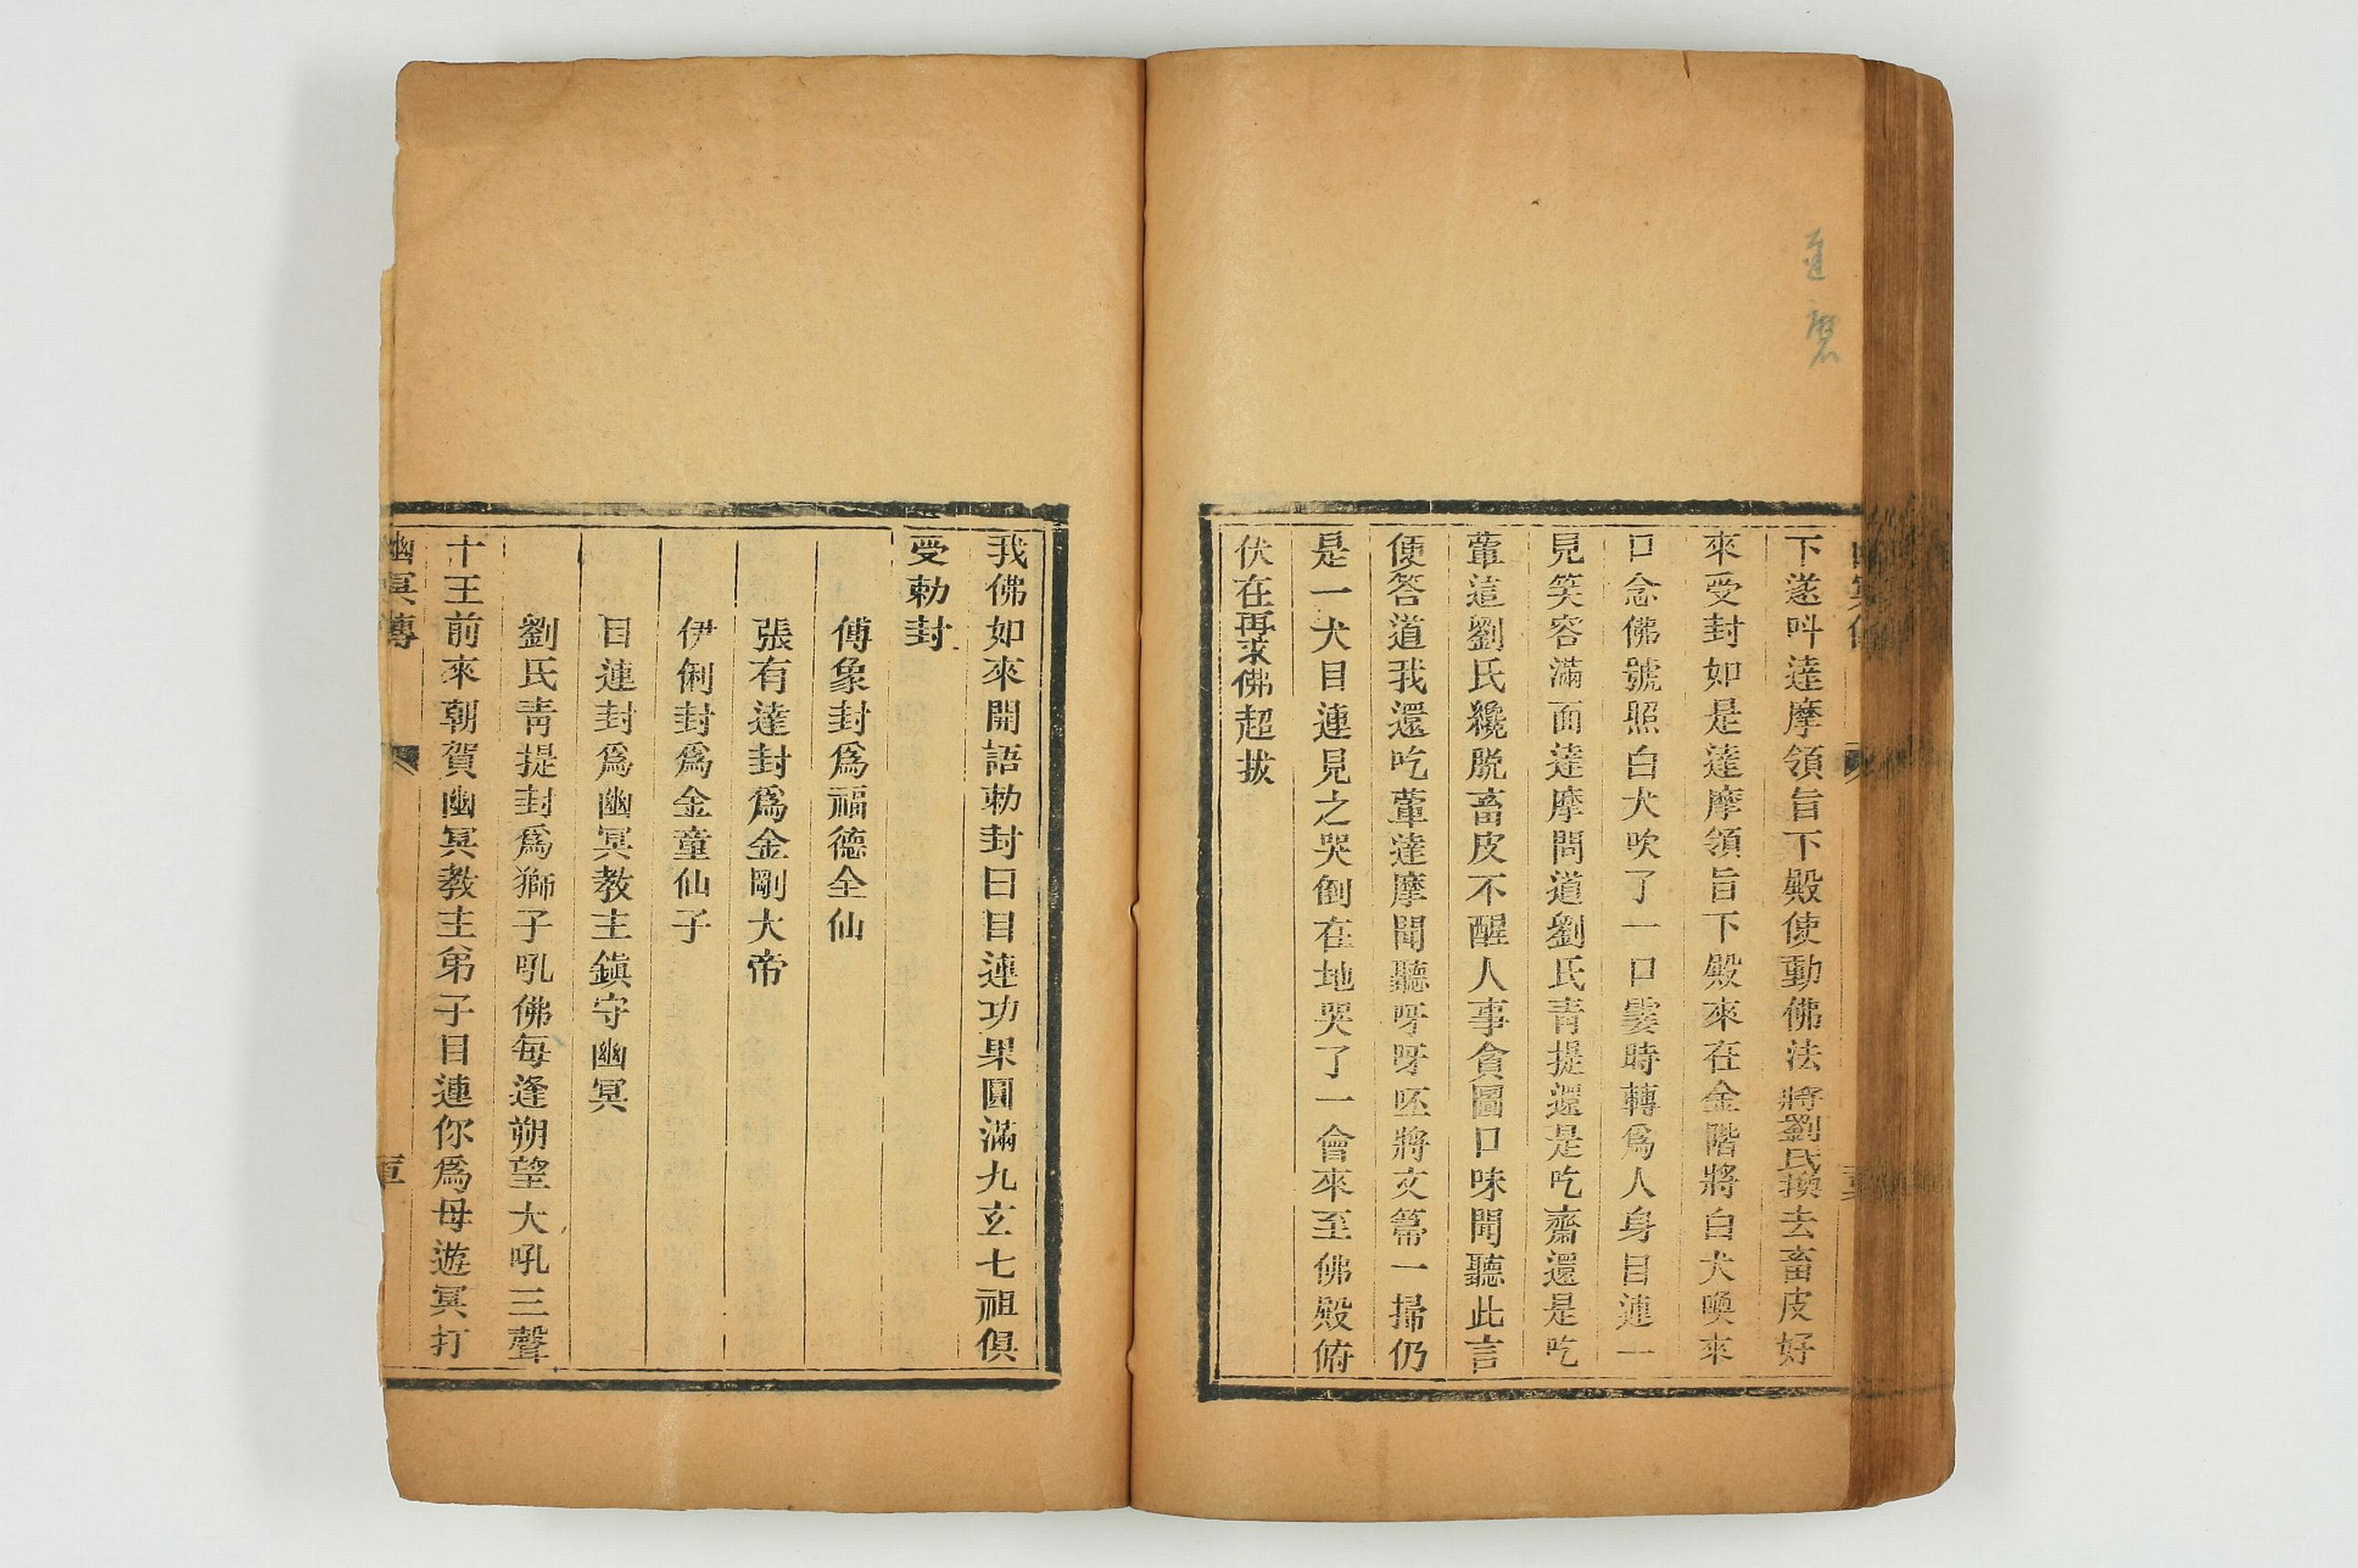 下遂叫達摩領旨下殿使動佛法將劉氏換去畜皮好
來受封如是達摩領旨下殿來在金階將白犬喚來
口念佛號照白犬吹了一口霎時轉爲人身目連一
見笑容滿面達摩問道劉氏青提還是吃齋還是吃
葷這劉氏纔脫畜皮不醒人事貪圖口味聞聽此言
便答道我還吃葷達摩聞聽呀呀呸將文箒一掃仍
是一犬目連見之哭倒在地哭了一會來至佛殿俯
伏在再求佛超拔
我佛如來開語勅封曰目連功果圓滿九玄七祖俱
受勅封
傅象封爲福德全仙
張有達封爲金剛大帝
伊俐封爲金童仙子
目連封爲幽冥教主鎭守幽冥
劉氏靑提封爲獅子吼佛每逢朔望大吼三聲
十王前來朝賀幽冥教主弟子目連你爲母遊冥打
幽冥傳